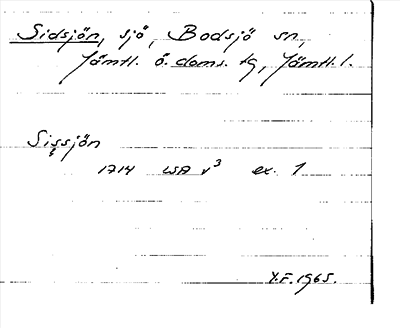 Sidsjön, sjö, Bodsjö sn,
Jämtl. ö. doms. tg, Jämtl. l.
Sissjön
1714 LSA v³ ex. 1
Y.F. 1965.